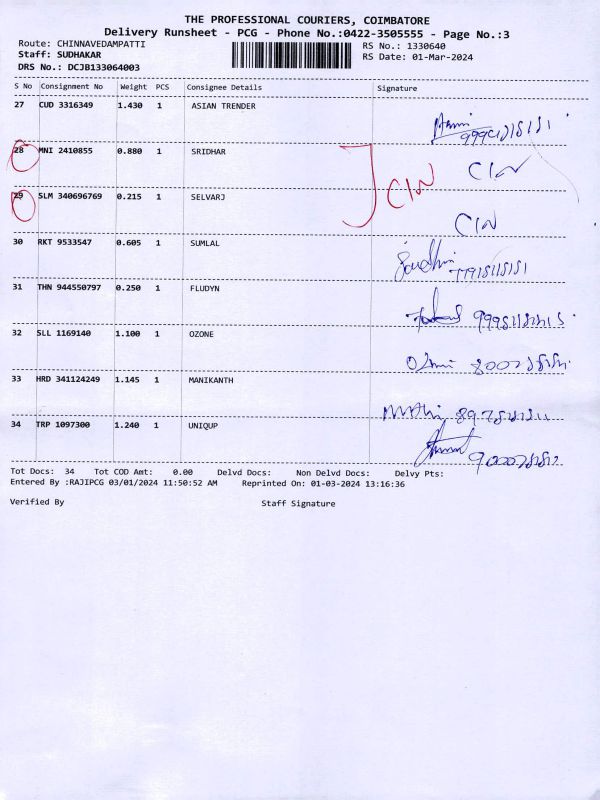 THE PROFESSIONAL COURIERS, COIMBATORE
Delivery Runsheet - PCG - Phone No.:0422-3505555 - Page No.:3
Route: CHINNAVEDAMPATTI
RS No.: 1330640
Staff: SUDHAKAR
RS Date: 01-Mar-2024
DRS No.: DCJB133064003
S No Consignment No Weight PCS Consignee Details Signature
27 CUD 3316349 1.430 1 ASIAN TRENDER
28 MNI 2410855 0.880 1 SRIDHAR CIN
29 SLM 340696769 0.215 1 SELVARJ CIN CIN
30 RKT 9533547 0.605 1 SUMLAL
31 THN 944550797 0.250 1 FLUDYN
32 SLL 1169140 1.100 1 OZONE
33 HRD 341124249 1.145 1 MANIKANTH
34 TRP 1097300 1.240 1 UNIQUP
Tot Docs: 34 Tot COD Amt: 0.00 Delvd Docs: Non Delvd Docs: Delvy Pts:
Entered By :RAJIPCG 03/01/2024 11:50:52 AM Reprinted On: 01-03-2024 13:16:36
Verified By Staff Signature